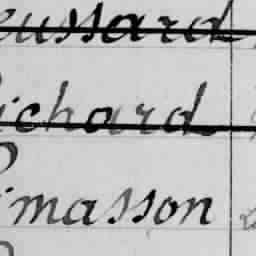 eussard
ichard
imasson